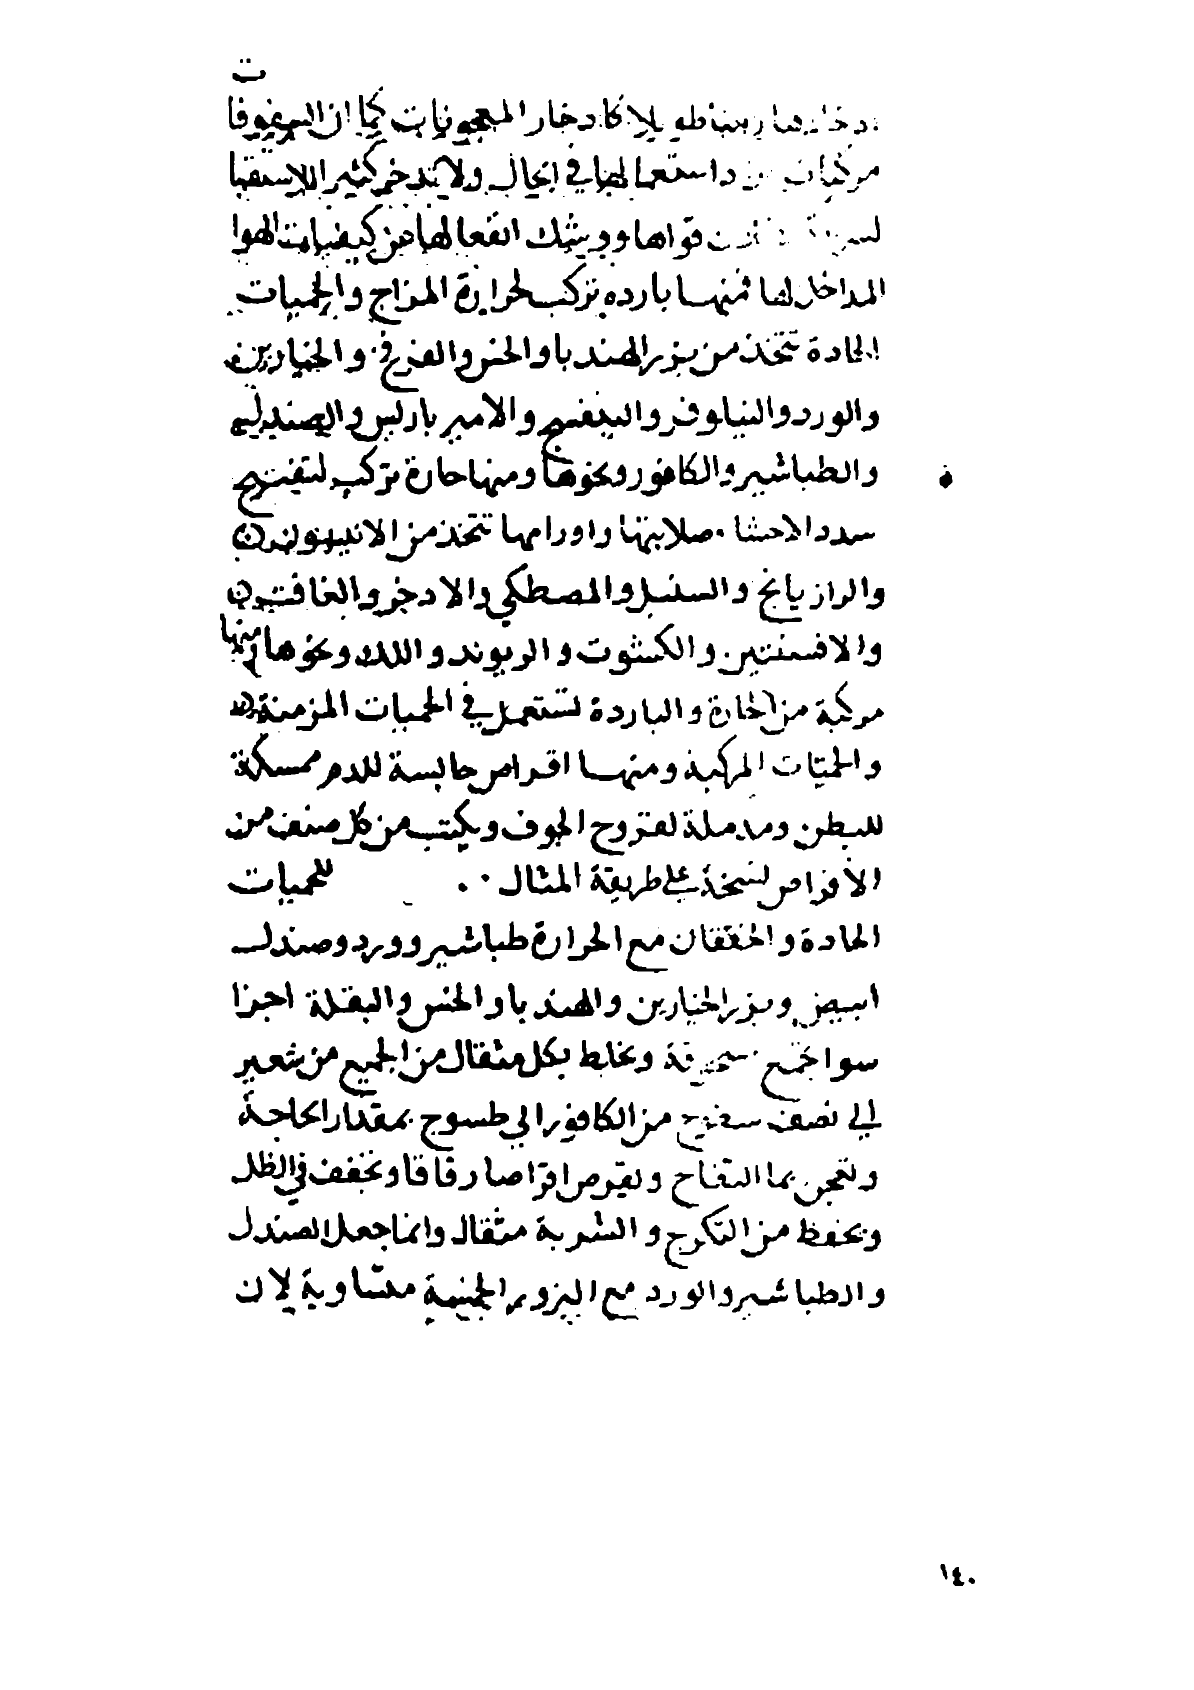 ت
كادخار المعجونات كما ان السفوفا
داستعمالها في الحال ولا تدخر كثيرا لاستقبا
قواها ووشك انفعالها عن كيفيات الهوا
المداخل لها فمنها بارده تركب لحرارة المزاج والحميات
الحادة تتخذ من بزر الهندبا والخس والفرفخ والخيارين
والورد والنيلوفر والبنفسج والامير باريس والصندلين
والطباشير والكافور ونحوها ومنها حارة تركب لتفتيح
سدد الاحشا صلابتها واورامها تتخذ من الانيسون
والرازيانج والسنبل والمصطكي والادخر والغافت
والافسنتين والكشوت والريوند واللك ونحوها ومنها
مركبة من الحارة والباردة تستعمل في الحميات المزمنة
والحميات المركبة ومنها اقراص حابسة للدم ممسكة
للبطن ومدملة لقروح الجوف ونكتب من كل صنف من
الاقراص نسخة على طريقة المثال للحميات
الحادة والخفقان مع الحرارة طباشير وورد وصندل
ابيض وبزر الخيارين والهندبا والخس والبقلة اجزا
سوا تجمع مسحوقة ويخلط بكل مثقال من الجميع من شعير
الى نصف من الكافور الي طسوج بمقدار الحاجة
وتعجن بما التفاح وتقرص اقراصا رقاقا وتجفف في الظل
وتحفظ من التكرج والشربة مثقال وانما جعل الصندل
والطباشير والورد مع البزور الجنية متساوية لان
١٤٠